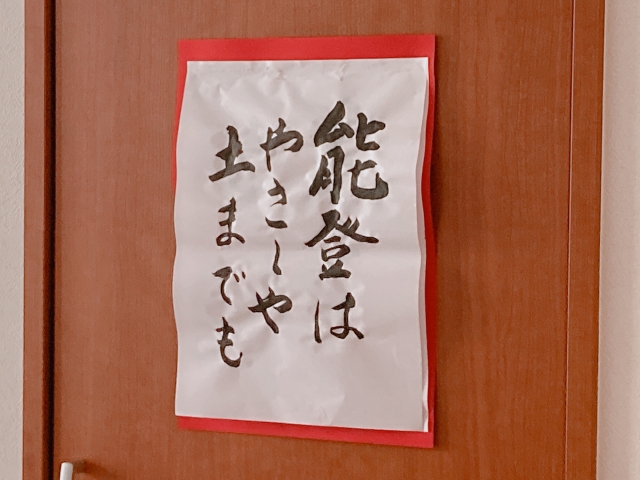 能登は
やさしや
土までも